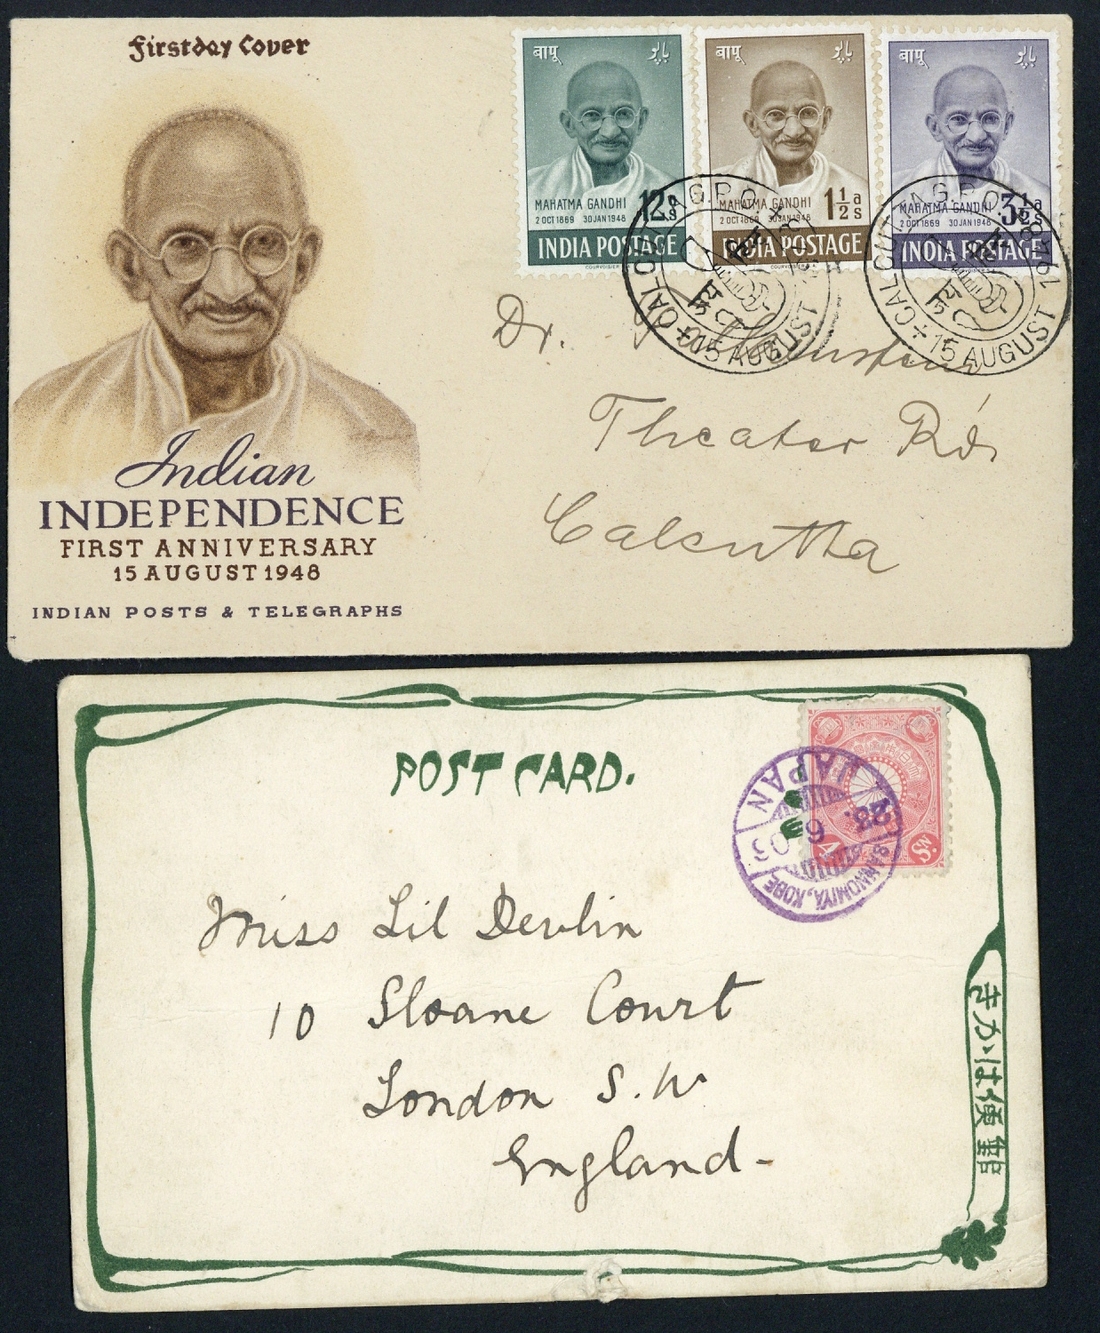 Firstday Cover
Indian
INDEPENDENCE
FIRST ANNIVERSARY
15 AUGUST 1948
INDIAN POSTS & TELEGRAPHS
बापू
MAHATMA GANDHI
2 OCT 1869 30 JAN 1948
12 As
INDIA POSTAGE
COURVOISIER
बापू
MAHATMA GANDHI
2 OCT 1869 30 JAN 1948
1½ as
INDIA POSTAGE
COURVOISIER
बापू
MAHATMA GANDHI
2 OCT 1869 30 JAN 1948
3½ as
INDIA POSTAGE
CALCUTTA G.P.O.
15 AUGUST
जय हिन्द
CALCUTTA G.P.O.
15 AUGUST 1948
जय हिन्द
Dr.
Theater Rd.
Calcutta
POST CARD.
4 Sn.
JAPAN
23. 6 03
SANNOMIYA, KOBE
Miss Lil Devlin
10 Sloane Court
London S. W
England-
きかは便郵